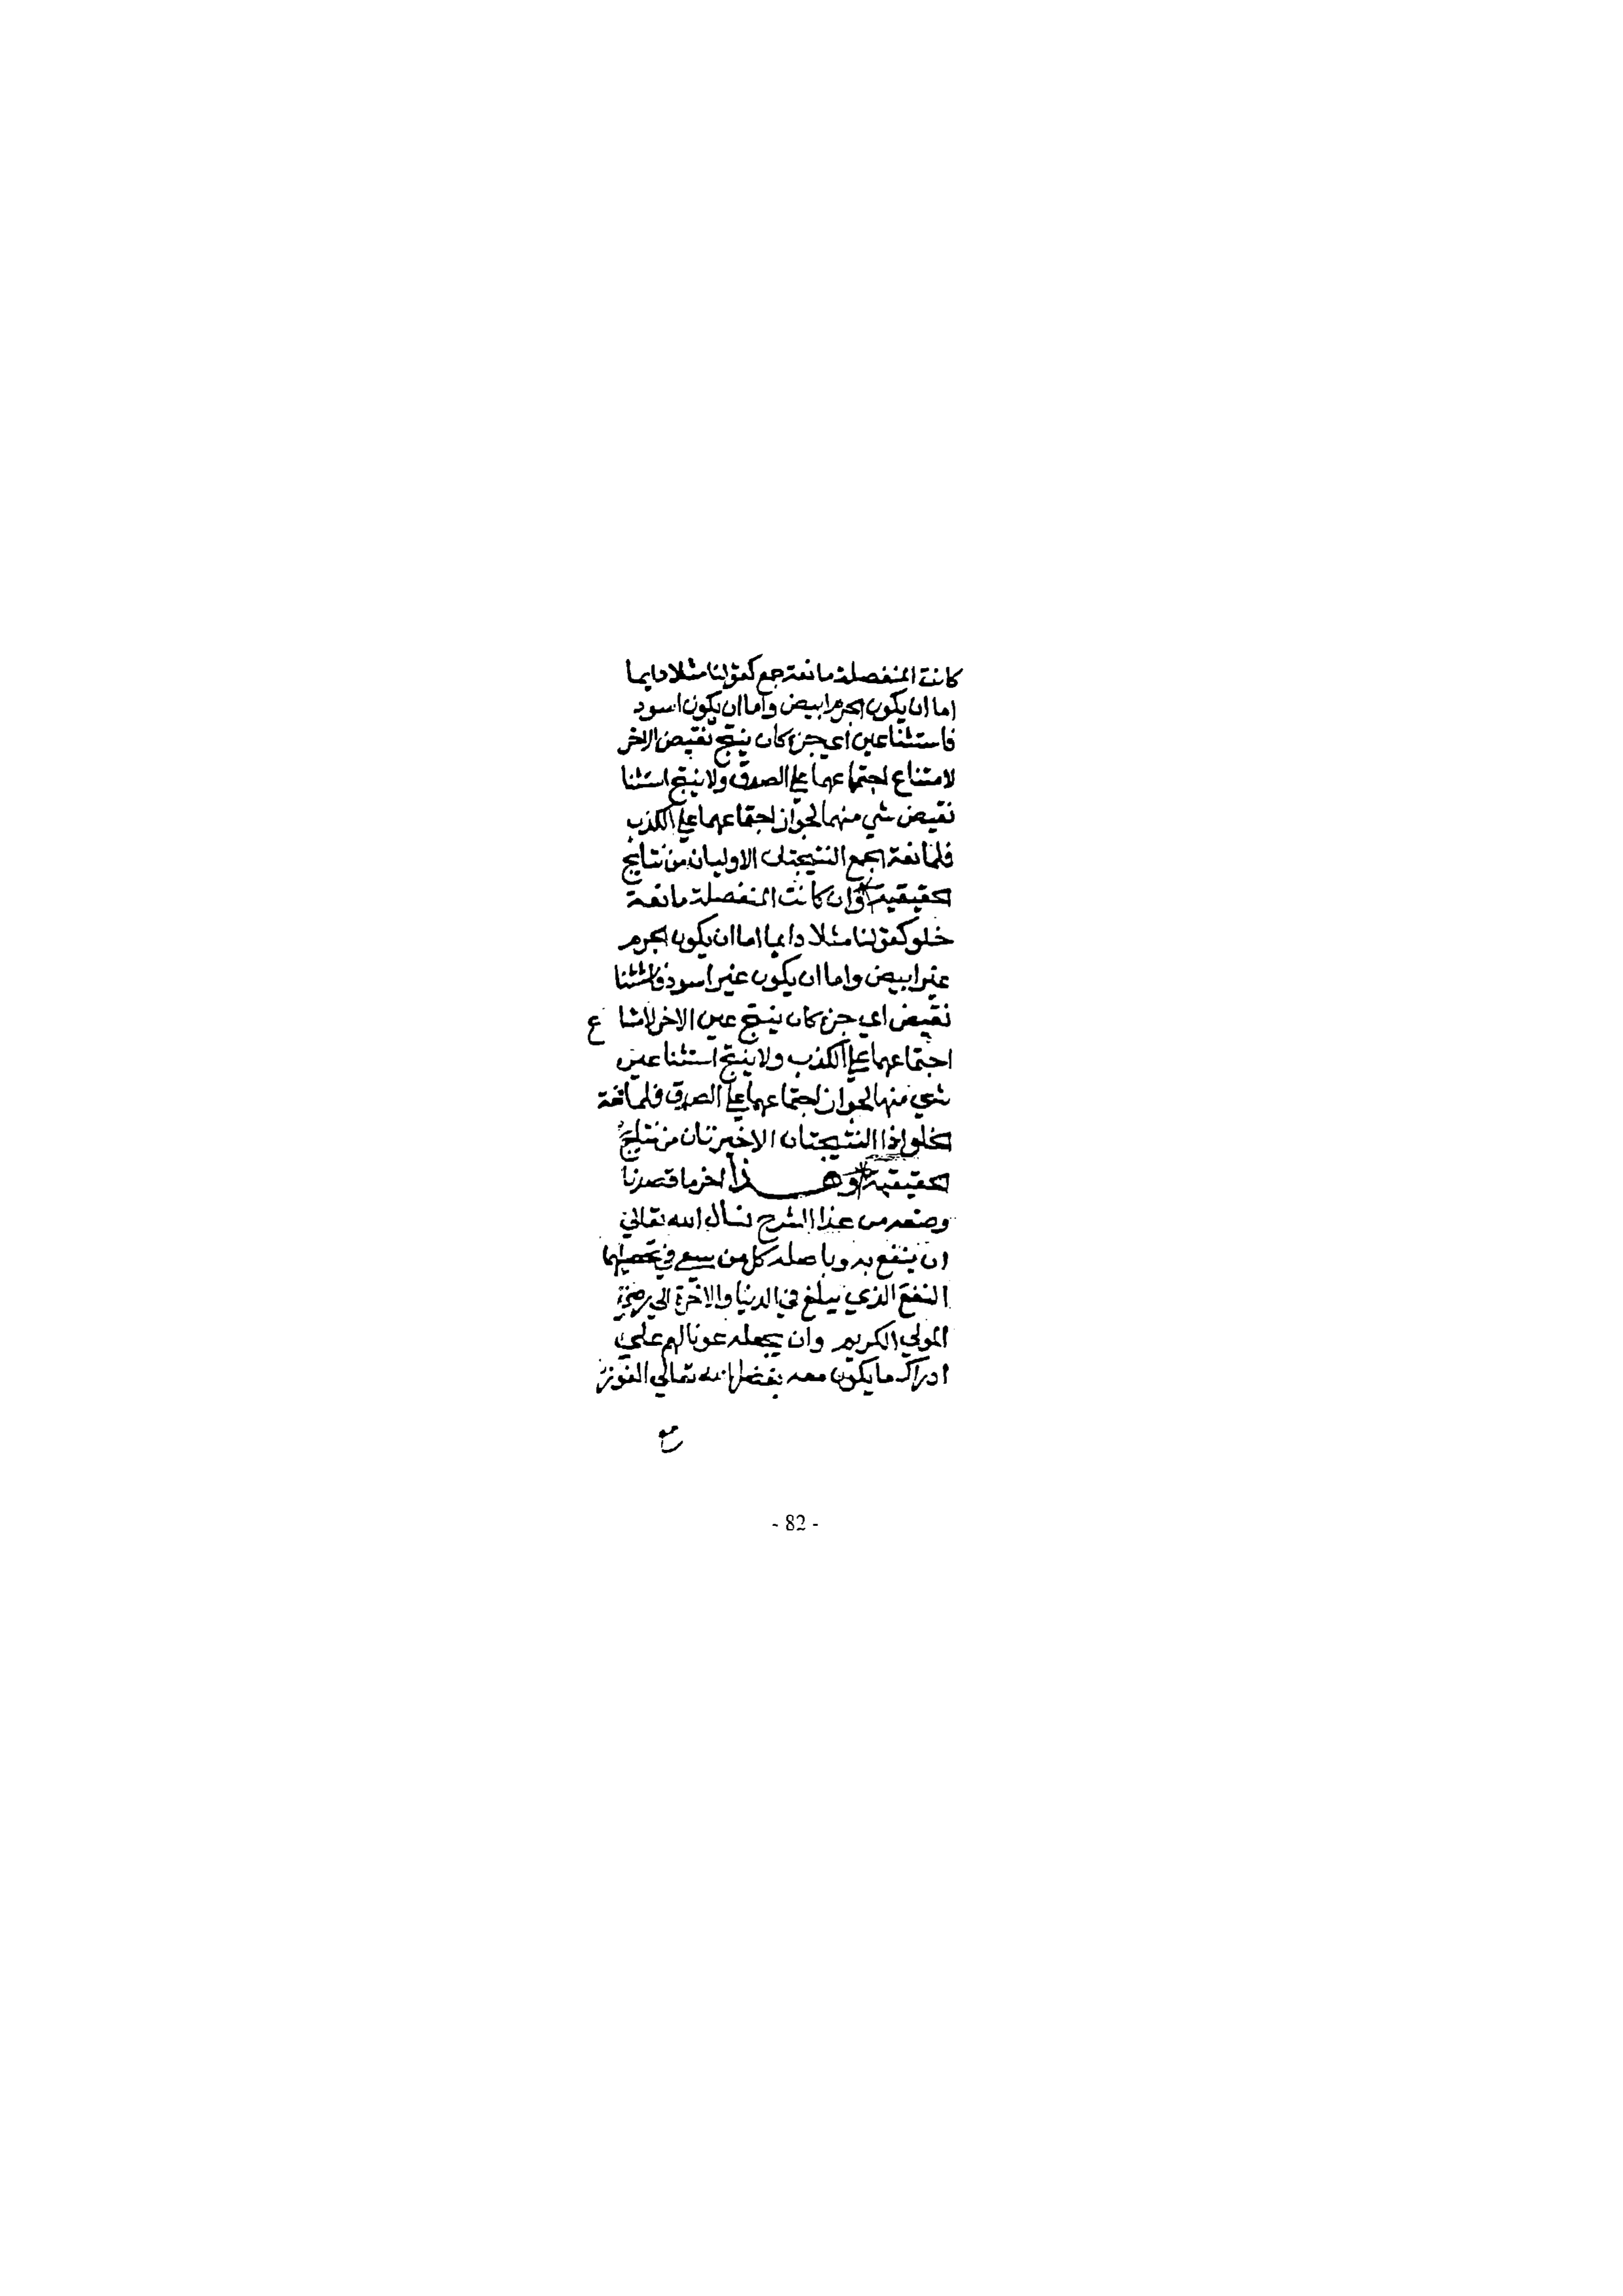 كانت المنفصلة مانعة جمع كقولنا مثلا دايما
اما ان يكون الجرم ابيض واما ان يكون اسود
فاستثنا عين اي جزء كان ينتج نقيض الاخر
لامتناع اجتماعهما علي الصدق ولا ينتج استثنا
نقيض شي منهما لجواز اجتماعهما علي الكذب
فلمانعة الجمع النتيجتان الاوليان من نتايج
الحقيقية وان كانت المنفصلة مانعة
خلو كقولنا مثلا دايما اما ان يكون الجرم
غير ابيض واما ان يكون غير اسود فاستثنا
نقيض اي جزء كان ينتج عين الاخر لامتناع
اجتماعهما علي الكذب ولا ينتج استثنا عين
شي منهما لجواز اجتماعهما علي الصدق فلمانعة
الخلو اذا النتيجتان الاخيرتان من نتايج
الحقيقية وهذا اخر ما قصدنا
وضعه من هذا الشرح نسال الله تعالي
ان ينفع به وباصله كل من سعي في تحصيلهما
النفع الذي يبلغ في الدنيا والاخرة الي
المولي الكريم وان يجعله عونا لهم علي
ادراك ما يكون معه بفضل الله تعالي الفوز
- 82 -